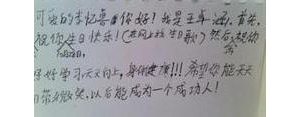 可爱的李忆喜 你好！我是王卓涵，首先，
祝你生日快乐！（在网上找生日歌）然后，祝你
好好学习，天天向上，身体健康！！！希望你能天天
带着微笑，以后能成为一个成功人！